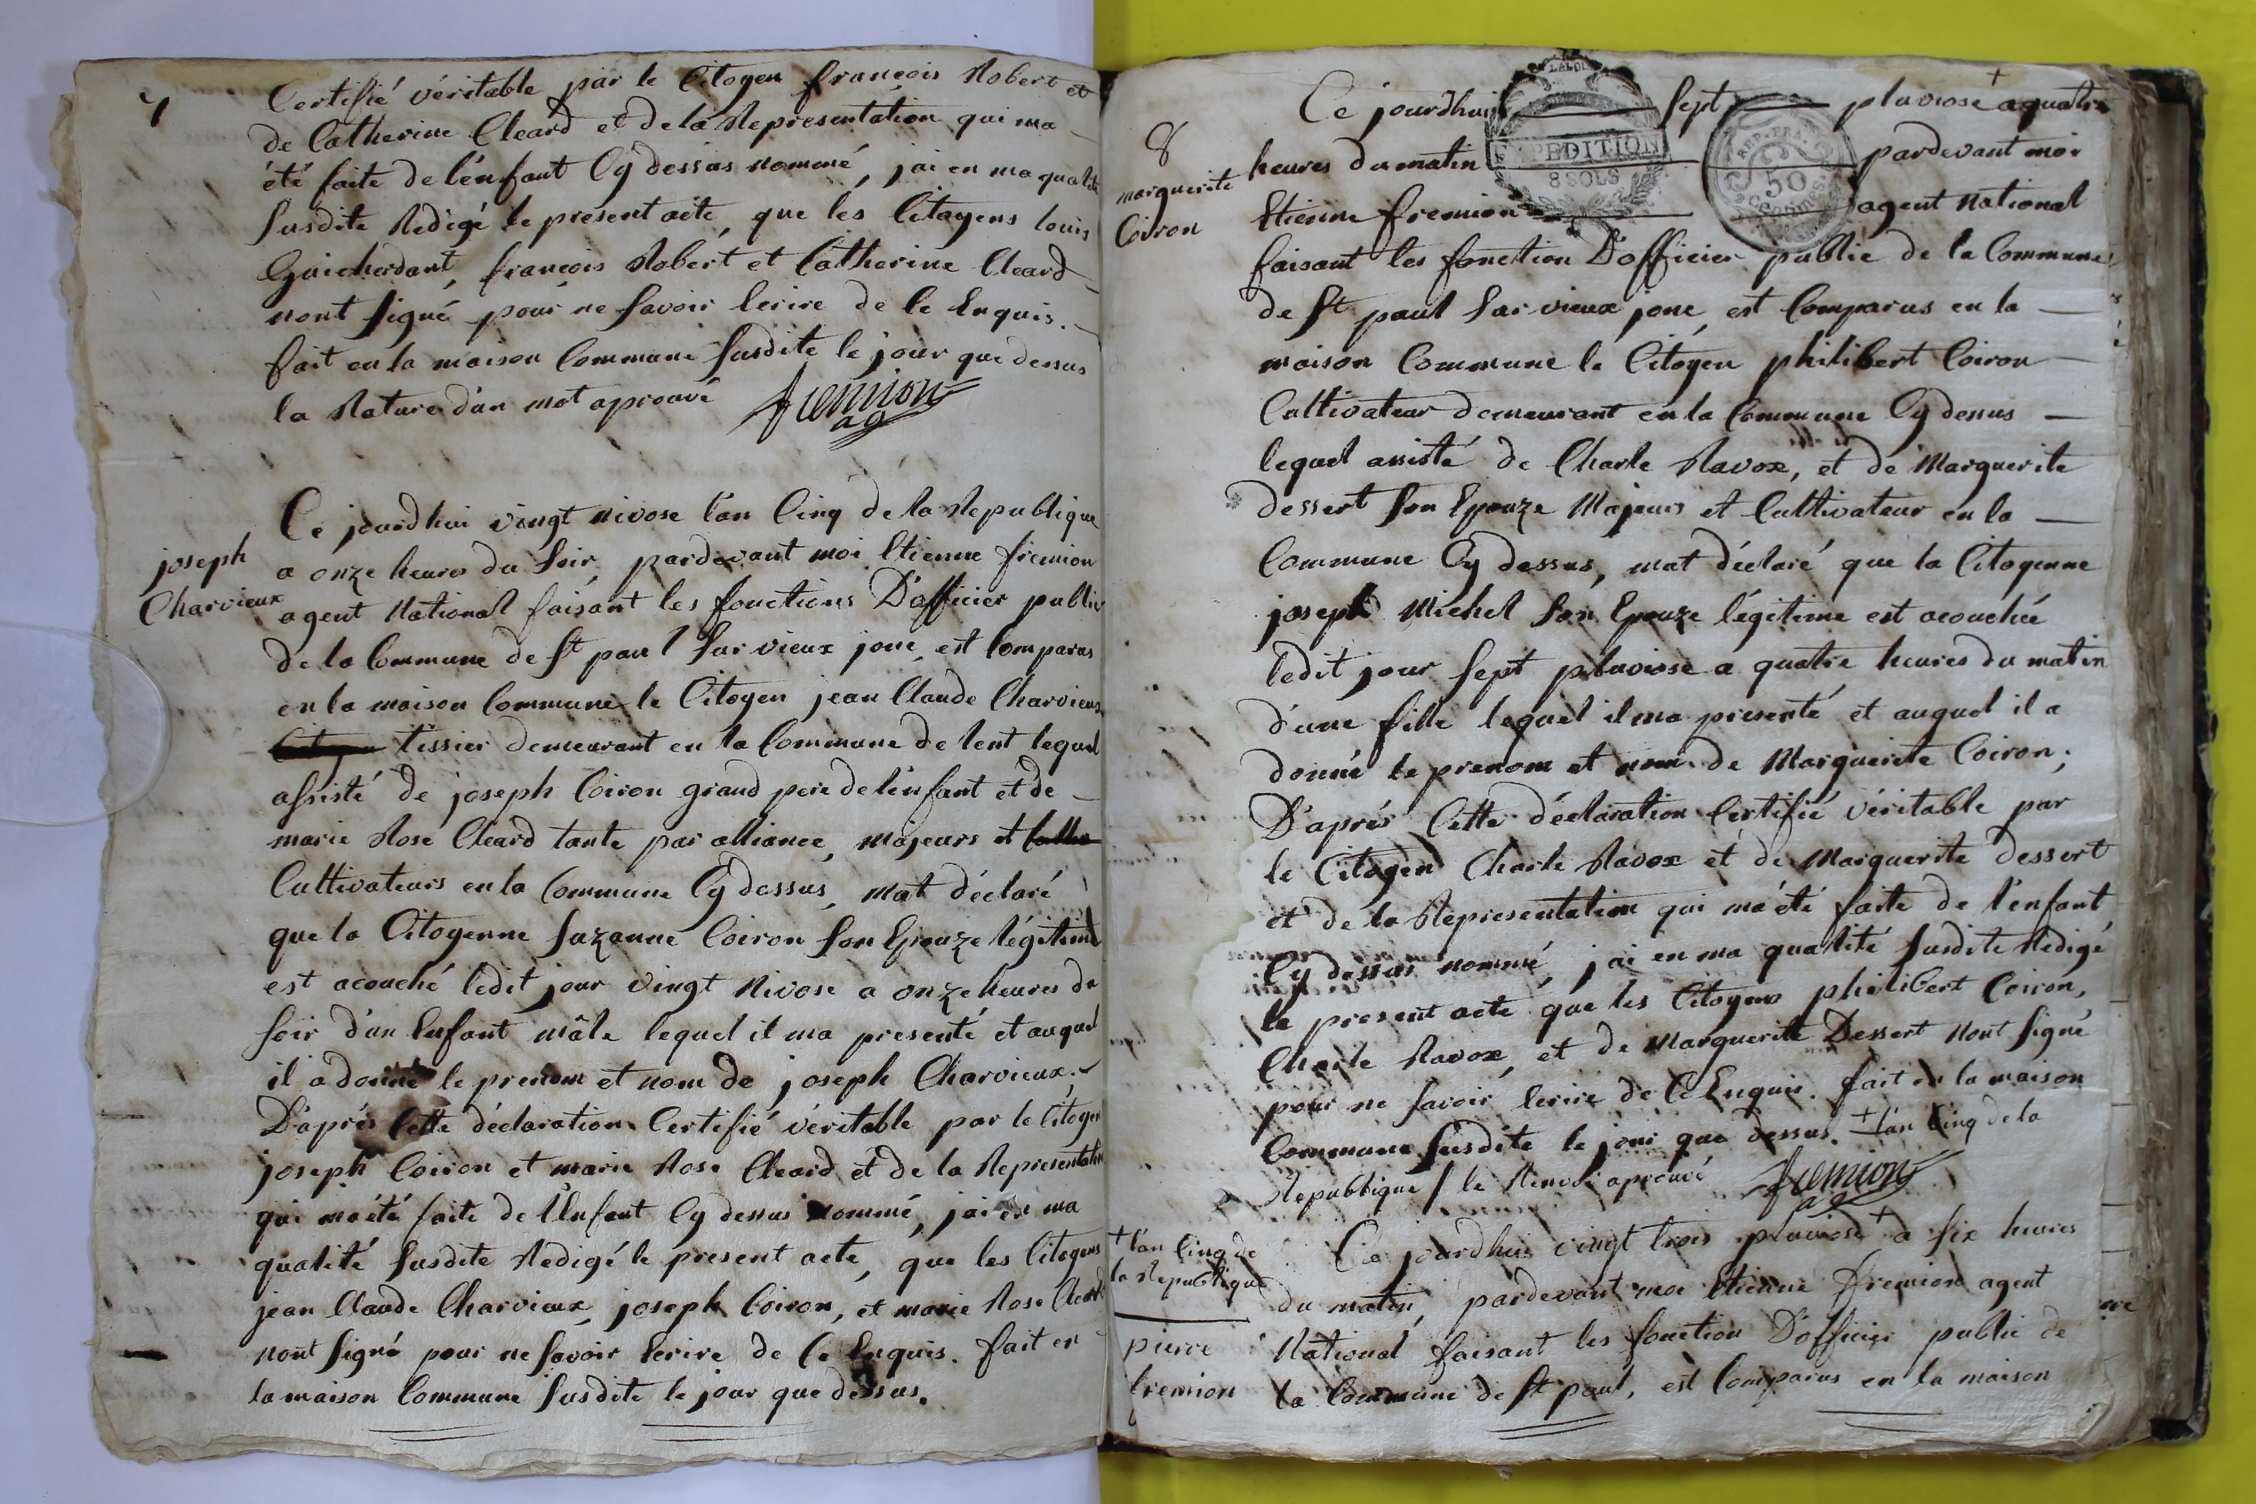 7
Certifié véritable par le Citoyen françois Robert et
de Catherine Cleard et de la Representation qui ma
été faite de lénfant Cÿ dessus nommé, jai en ma qualité
susdite Redigé le present acte, que lés Citoyens louis
Guicherdant, francois Robert et Catherine Cleard
nont signé pour ne savoir Ecrire de Ce Enquis.
fait en la maison Commune susdite le jour que dessus
la Rature d'un mot aprouvé fremion
ag
joseph
Charvieux
Ce jourdhui vingt nivose l'an Cinq de la Republique
a onze heures du soir, pardevant moi Etienne fremion
agent National faisant les fonctions D'officier public
de la Commune de St paul sur vieux jonc, est Comparus
en la maison Commune le Citoyen jean Claude Charvieux
tissier demeurant en la Commune de lent lequel
assisté de joseph Coiron grand pere de lénfant et de
marie Rose Cleard tante par alliance, majeurs et
Cultivateurs en la Commune Cÿ dessus, mat déclaré
que la Citoyenne Suzanne Coiron son Epouze légitime
est acouché ledit jour vingt Nivose a onze heures du
soir d'un Enfant mâle lequel il ma presenté et auquel
il a donné le prenom et nom de joseph Charvieux.
D'aprés Cette déclaration Certifié véritable par le Citoyen
joseph Coiron et marie Rose Cleard et de la Representation
qui m'a été faite de l'Enfant Cy dessus nommé, jai en ma
qualité susdite Redigé le present acte, que les Citoyens
jean Claude Charvieux, joseph Coiron, et marie Rose Cleard
nont signé pour ne savoir Ecrire de Ce Enquis. fait en
la maison Commune susdite le jour que dessus.
8
marguerite
Coiron
EXPEDITION
8 SOLS
REP. FRA.
50
Centimes
Ce jourdhui sept pluviose + a quatre
heures du matin pardevant moi
Etienne fremion agent National
faisant les fonction D'officier public de la Commune
de St paul sur vieux jonc, est Comparus en la
maison Commune le Citoyen philibert Coiron
Cultivateur demeurant en la Commune Cy dessus
lequel assisté de Charle Ravox, et de Marguerite
dessert son Epouze Majeurs et Cultivateur en la
Commune Cy dessus, mat déclaré que la Citoyenne
joseph Michel son Epouze légitime est acouchée
ledit jour sept pluviose a quatre heures du matin
d'une fille lequel il ma presenté et auquel il a
donné le prenom et nom de Marguerite Coiron;
D'aprés Cette déclaration Certifié véritable par
le Citoyen Charle Ravox et de Marguerite dessert
et de la Representation qui m'a été faite de l'enfant
Cy dessus nommé, jai en ma qualité susdite Rédigé
le present acte que les Citoyens philibert Coiron,
Charle Ravox, et de Marguerite Dessert Nont signé
pour ne savoir Ecrire de Ce Enquis. fait en la maison
Commune susdite le jour que dessus. + l'an Cinq de la
Republique / le Renvoi aprouvé fremion
ag
+ l'an Cinq de
la Republique
pierre
fremion
Ce jourdhui vingt trois pluviose + a six heures
du matin, pardevant moi Etienne fremion agent
National faisant les fonction D'officier public de
la Commune de St paul, est Comparus en la maison